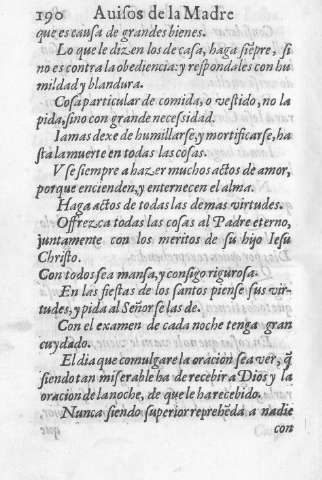 190 Auisos de la Madre
que es causa de grandes bienes.
Lo que le dizen los de casa, haga siẽpre, si
no es contra la obediencia: y respondales con hu
mildad y blandura.
Cosa particular de comida, o vestido, no la
pida, sino con grande necessidad.
Iamas dexe de humillarse, y mortificarse, ha
sta la muerte en todas las cosas.
Vse siempre a hazer muchos actos de amor,
porque encienden, y enternecen el alma.
Haga actos de todas las demas virtudes.
Offrezca todas las cosas al Padre eterno,
juntamente con los meritos de su hijo Iesu
Christo.
Con todos sea mansa, y consigo rigurosa.
En las fiestas de los santos piense sus vir-
tudes, y pida al Señor se las de.
Con el examen de cada noche tenga gran
cuydado.
El dia que comulgare la oraciòn sea ver, q̃
siendo tan miserable ha de recebir a Dios y la
oracion de la noche, de que le ha recebido.
Nunca siendo superior reprehẽda a nadie
con